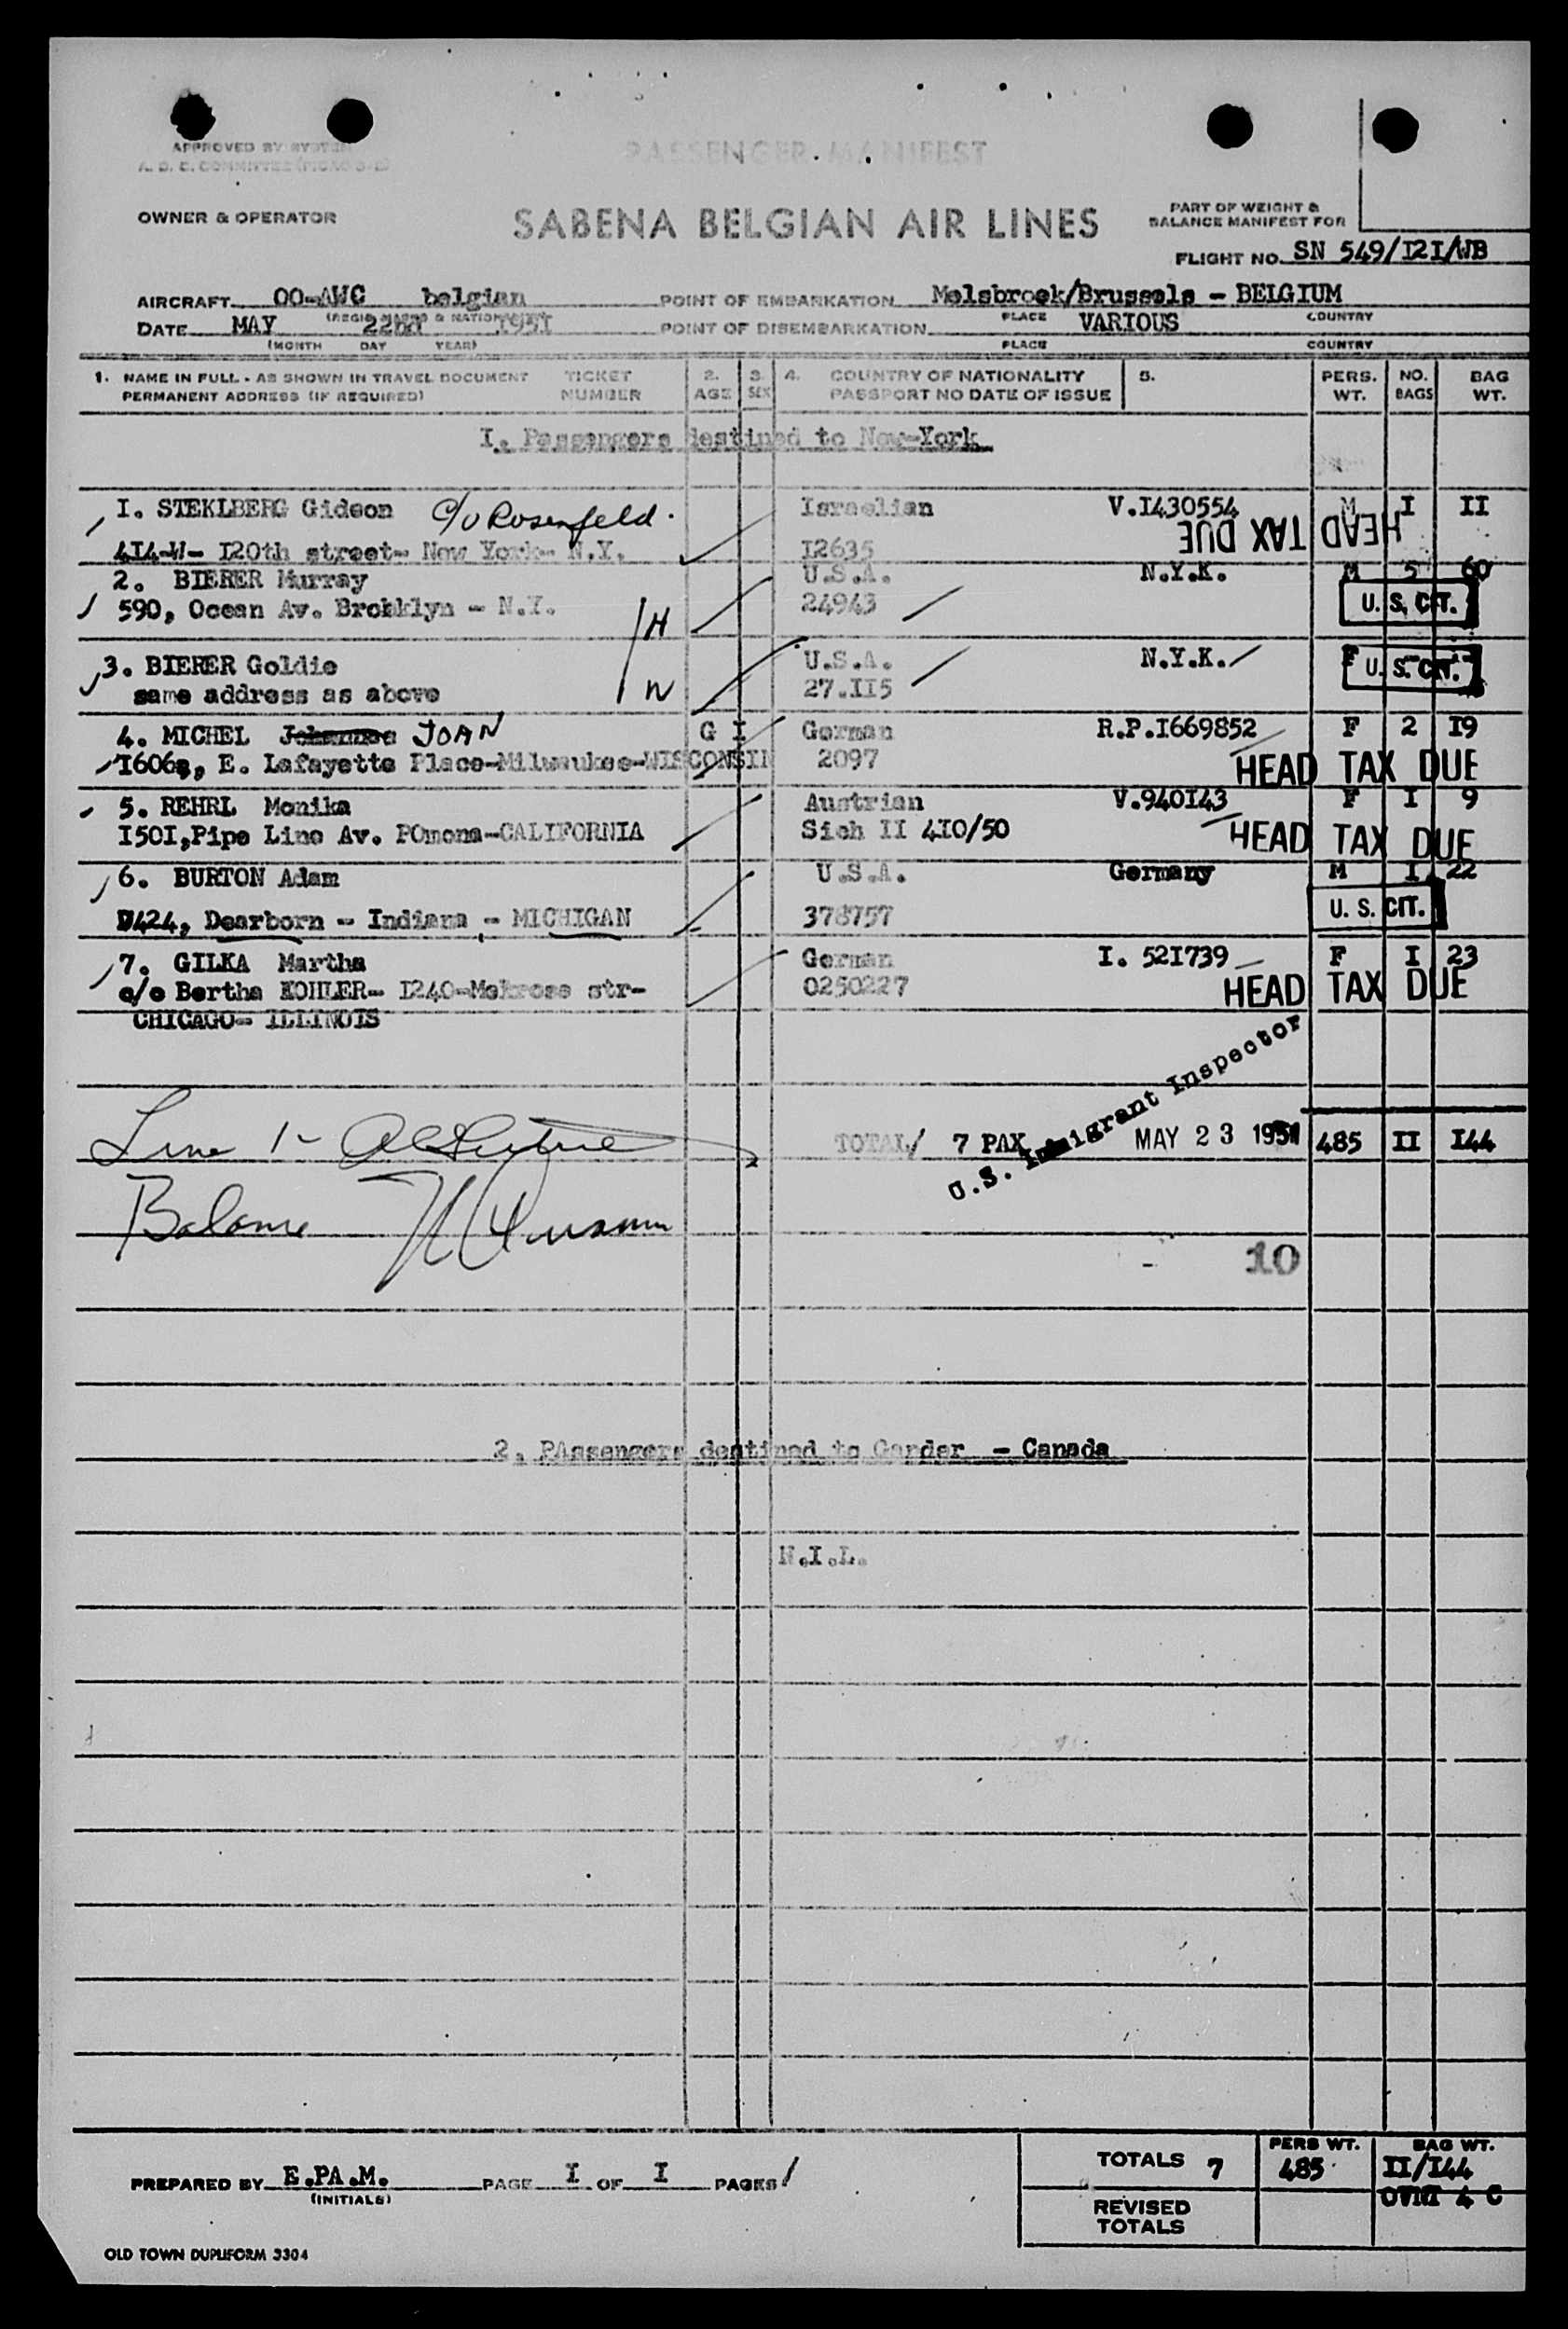 APPROVED BY SYSTEM
A. D. C. COMMITTEE (PICAO 3-2)
PASSENGER MANIFEST
OWNER & OPERATOR
SABENA BELGIAN AIR LINES
PART OF WEIGHT &
BALANCE MANIFEST FOR
FLIGHT NO. SN 549/I2I/WB
AIRCRAFT OO-AWC belgian POINT OF EMBARKATION Melsbroek/Brussels - BELGIUM
PLACE COUNTRY
DATE MAY 22nd 1951 POINT OF DISEMBARKATION VARIOUS
(MONTH DAY YEAR) PLACE COUNTRY
1. NAME IN FULL - AS SHOWN IN TRAVEL DOCUMENT TICKET 2. 3. 4. COUNTRY OF NATIONALITY 5. PERS. NO. BAG
PERMANENT ADDRESS (IF REQUIRED) NUMBER AGE SEX PASSPORT NO DATE OF ISSUE WT. BAGS WT.
I. Passengers destined to New-York
I. STEKLBERG Gideon c/o Rosenfeld. Israelian V.I430554 M I II
HEAD TAX DUE
4I4-W- I20th street- New York- N.Y. I2635
2. BIERER Murray U.S.A. N.Y.K. M 5 60
590, Ocean Av. Brobklyn - N.Y. H 24943 U. S. CIT.
3. BIERER Goldie U.S.A. N.Y.K. F U. S. CIT.
same address as above W 27.II5
4. MICHEL Johannes JOAN G I German R.P.I669852 F 2 I9
I606a, E. Lafayette Place-Milwaukee-WISCONSIN 2097 HEAD TAX DUE
5. REHRL Monika Austrian V.940I43 F I 9
I50I,Pipe Line Av. POmona-CALIFORNIA Sich II 4I0/50 HEAD TAX DUE
6. BURTON Adam U.S.A. Germany M I 22
D424, Dearborn - Indiana - MICHIGAN 378757 U. S. CIT.
7. GILKA Martha German I. 52I739 F I 23
c/o Bertha KOHLER- I240-Melrose str- 0250227 HEAD TAX DUE
CHICAGO- ILLINOIS
U.S. Immigrant Inspector
Line 1-
TOTAL/ 7 PAX MAY 23 1951 485 II I44
Balance
10
2. PAssengers destined to Gander - Canada
N.I.L.
PREPARED BY E.PA.M. PAGE I OF I PAGES
(INITIALS)
TOTALS 7 PERS WT. 485 BAG WT. II/I44
REVISED
TOTALS
OLD TOWN DUPLIFORM 3304